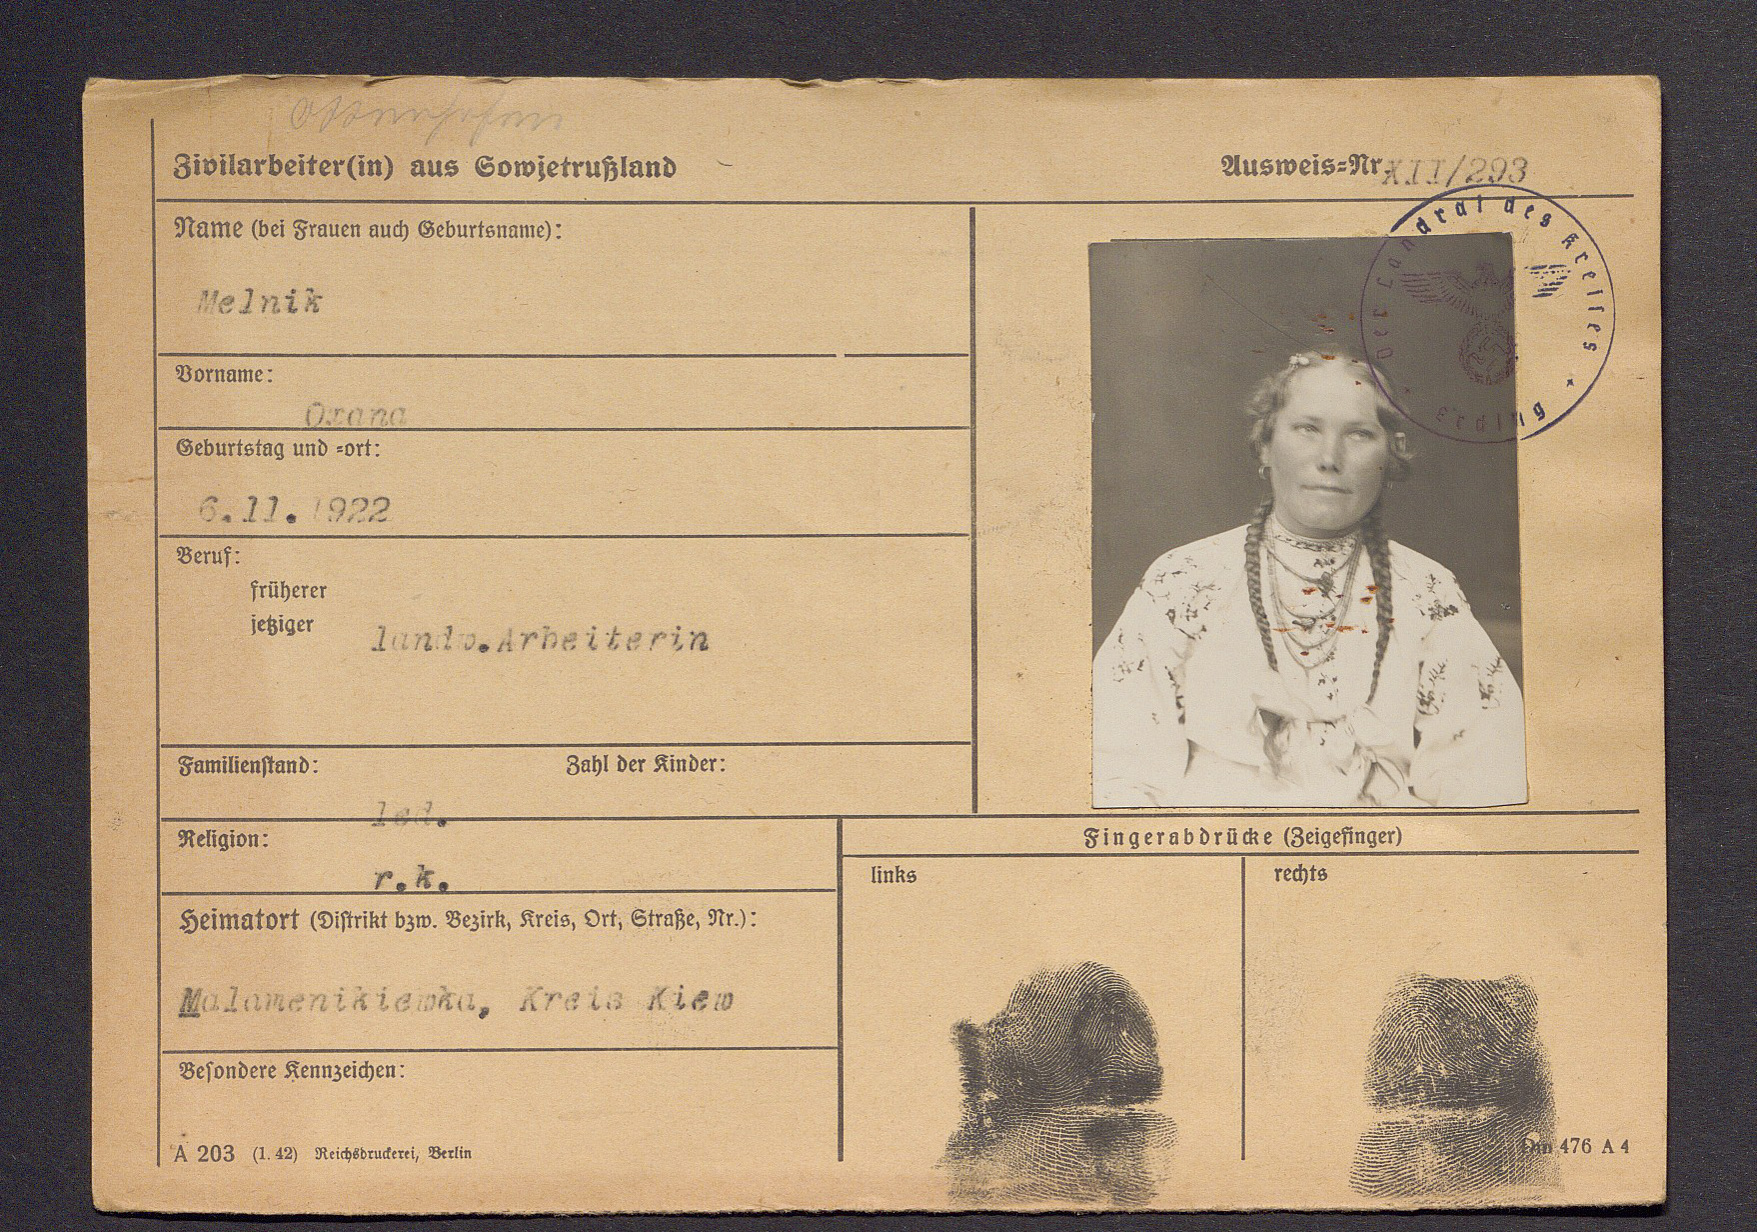 Zivilarbeiter(in) aus Sowjetrußland
Ausweis=Nr. XII/293
Name (bei Frauen auch Geburtsname):
Melnik
Vorname:
Oxana
Geburtstag und =ort:
6.11.1922
Beruf:
früherer
jetziger
landw.Arbeiterin
Familienstand:
Zahl der Kinder:
led.
Religion:
r.k.
Heimatort (Distrikt bzw. Bezirk, Kreis, Ort, Straße, Nr.):
Malamenikiewka, Kreis Kiew
Besondere Kennzeichen:
A 203 (1. 42) Reichsdruckerei, Berlin
Der Landrat des Kreises * Erding *
Fingerabdrücke (Zeigefinger)
links
rechts
Din 476 A 4